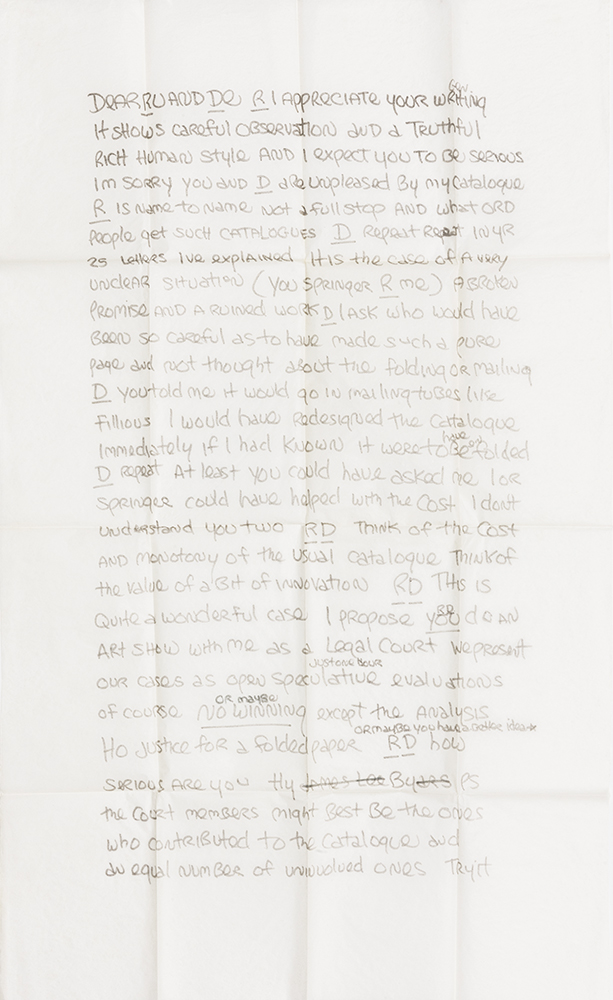 DEAR RU AND DE R I APPRECIATE YOUR WRITING
It SHOWS CAREFUL OBSERVATION AND A TRUTHFUL
RICH HUMAN STYLE AND I EXPECT YOU TO BE SERIOUS
IM SORRY YOU AND D ARE UNPLEASED BY MY CATALOGUE
R IS NAME TO NAME NOT A FULL STOP AND WHAT ORD
PEOPLE GET SUCH CATALOGUES D REPEAT REPEAT IN YR
25 LETTERS IVE EXPLAINED IT IS THE CASE OF A VERY
UNCLEAR SITUATION (YOU SPRINGER R ME) A BROKEN
PROMISE AND A RUINED WORK D I ASK WHO WOULD HAVE
BEEN SO CAREFUL AS TO HAVE MADE SUCH A PURE
PAGE AND NOT THOUGHT ABOUT THE FOLDING OR MAILING
D YOU TOLD ME IT WOULD GO IN MAILING TUBES LIKE
FILLIOUS I WOULD HAVE REDESIGNED THE CATTALOGUE
IMMEDIATELY IF I HAD KNOWN IT WERE TO HAVE BEEN FOLDED
D REPEAT AT LEAST YOU COULD HAVE ASKED ME I OR
SPRINGER COULD HAVE HELPED WITH THE COST I DONT
UNDERSTAND YOU TWO RD THINK OF THE COST
AND MONOTONY OF THE USUAL CATALOGUE THINK OF
THE VALUE OF A BIT OF INNOVATION RD THIS IS
QUITE A WONDERFUL CASE I PROPOSE YOU DO AN
ART SHOW WITH ME AS A LEGAL COURT WE PRESENT
JUST ONE HOUR
OUR CASES AS OPEN SPECULATIVE EVALUATIONS
OR MAYBE
OF COURSE NO WINNING EXCEPT THE ANALYSIS
OR MAYBE YOU HAVE A BETTER IDEA
HO JUSTICE FOR A FOLDED PAPER RD HOW
SERIOUS ARE YOU HLY JAMES LEE BYARS PS
THE COURT MEMBERS MIGHT BEST BE THE ONES
WHO CONTRIBUTED TO THE CATALOGUE AND
AN EQUAL NUMBER OF UNINVOLVED ONES TRY IT